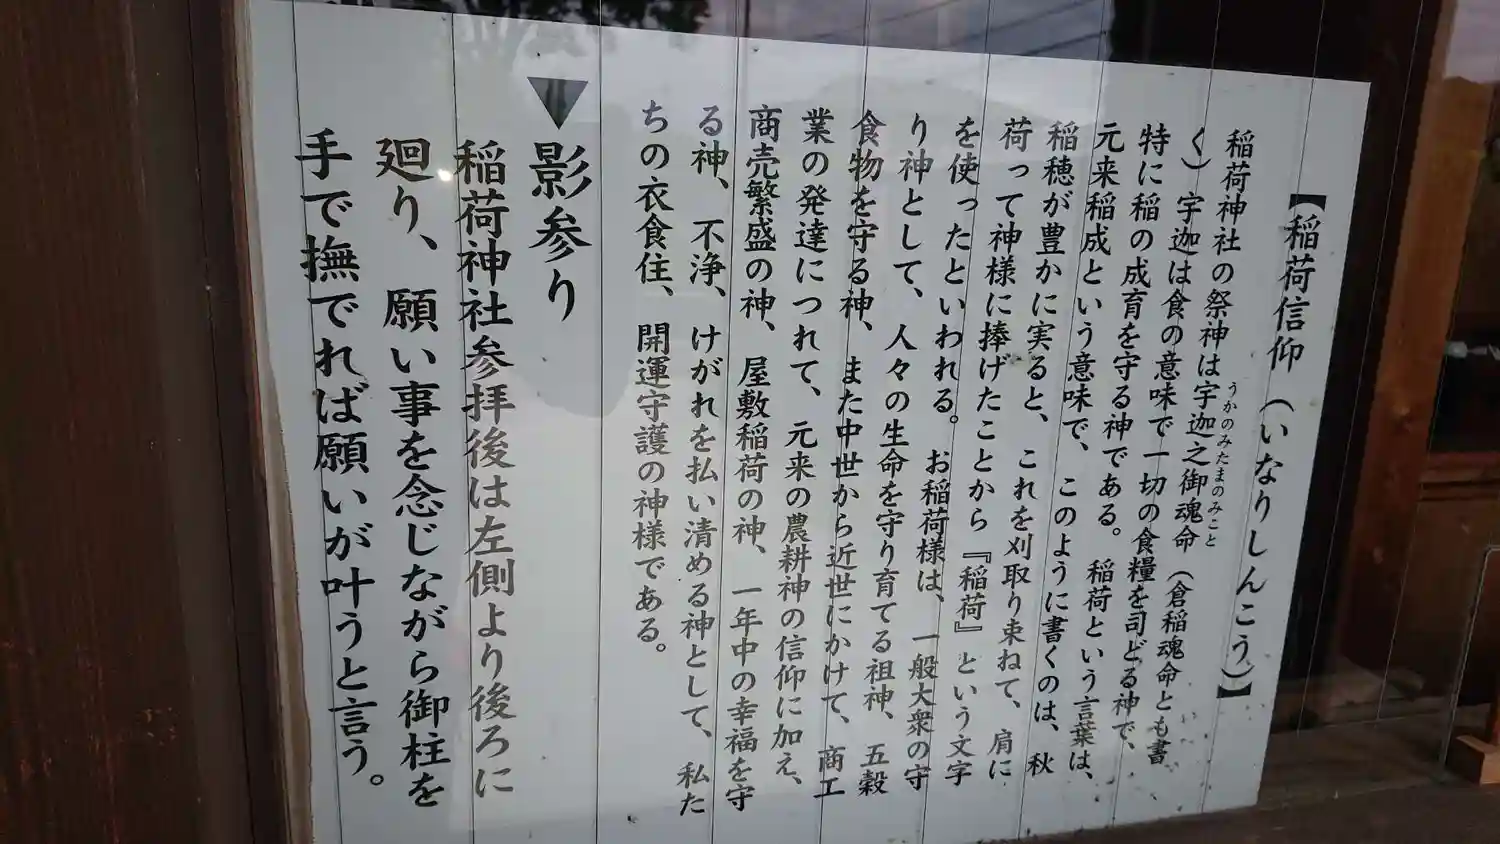 【稲荷信仰（いなりしんこう）】
稲荷神社の祭神は宇迦之御魂命（倉稲魂命とも書
うかのみたまのみこと
く）宇迦は食の意味で一切の食糧を司どる神で、
特に稲の成育を守る神である。稲荷という言葉は、
元来稲成という意味で、このように書くのは、秋
稲穂が豊かに実ると、これを刈取り束ねて、肩に
荷って神様に捧げたことから『稲荷』という文字
を使ったといわれる。お稲荷様は、一般大衆の守
り神として、人々の生命を守り育てる祖神、五穀
食物を守る神、また中世から近世にかけて、商工
業の発達につれて、元来の農耕神の信仰に加え、
商売繁盛の神、屋敷稲荷の神、一年中の幸福を守
る神、不浄、けがれを払い清める神として、私た
ちの衣食住、開運守護の神様である。
▼影参り
稲荷神社参拝後は左側より後ろに
廻り、願い事を念じながら御柱を
手で撫でれば願いが叶うと言う。